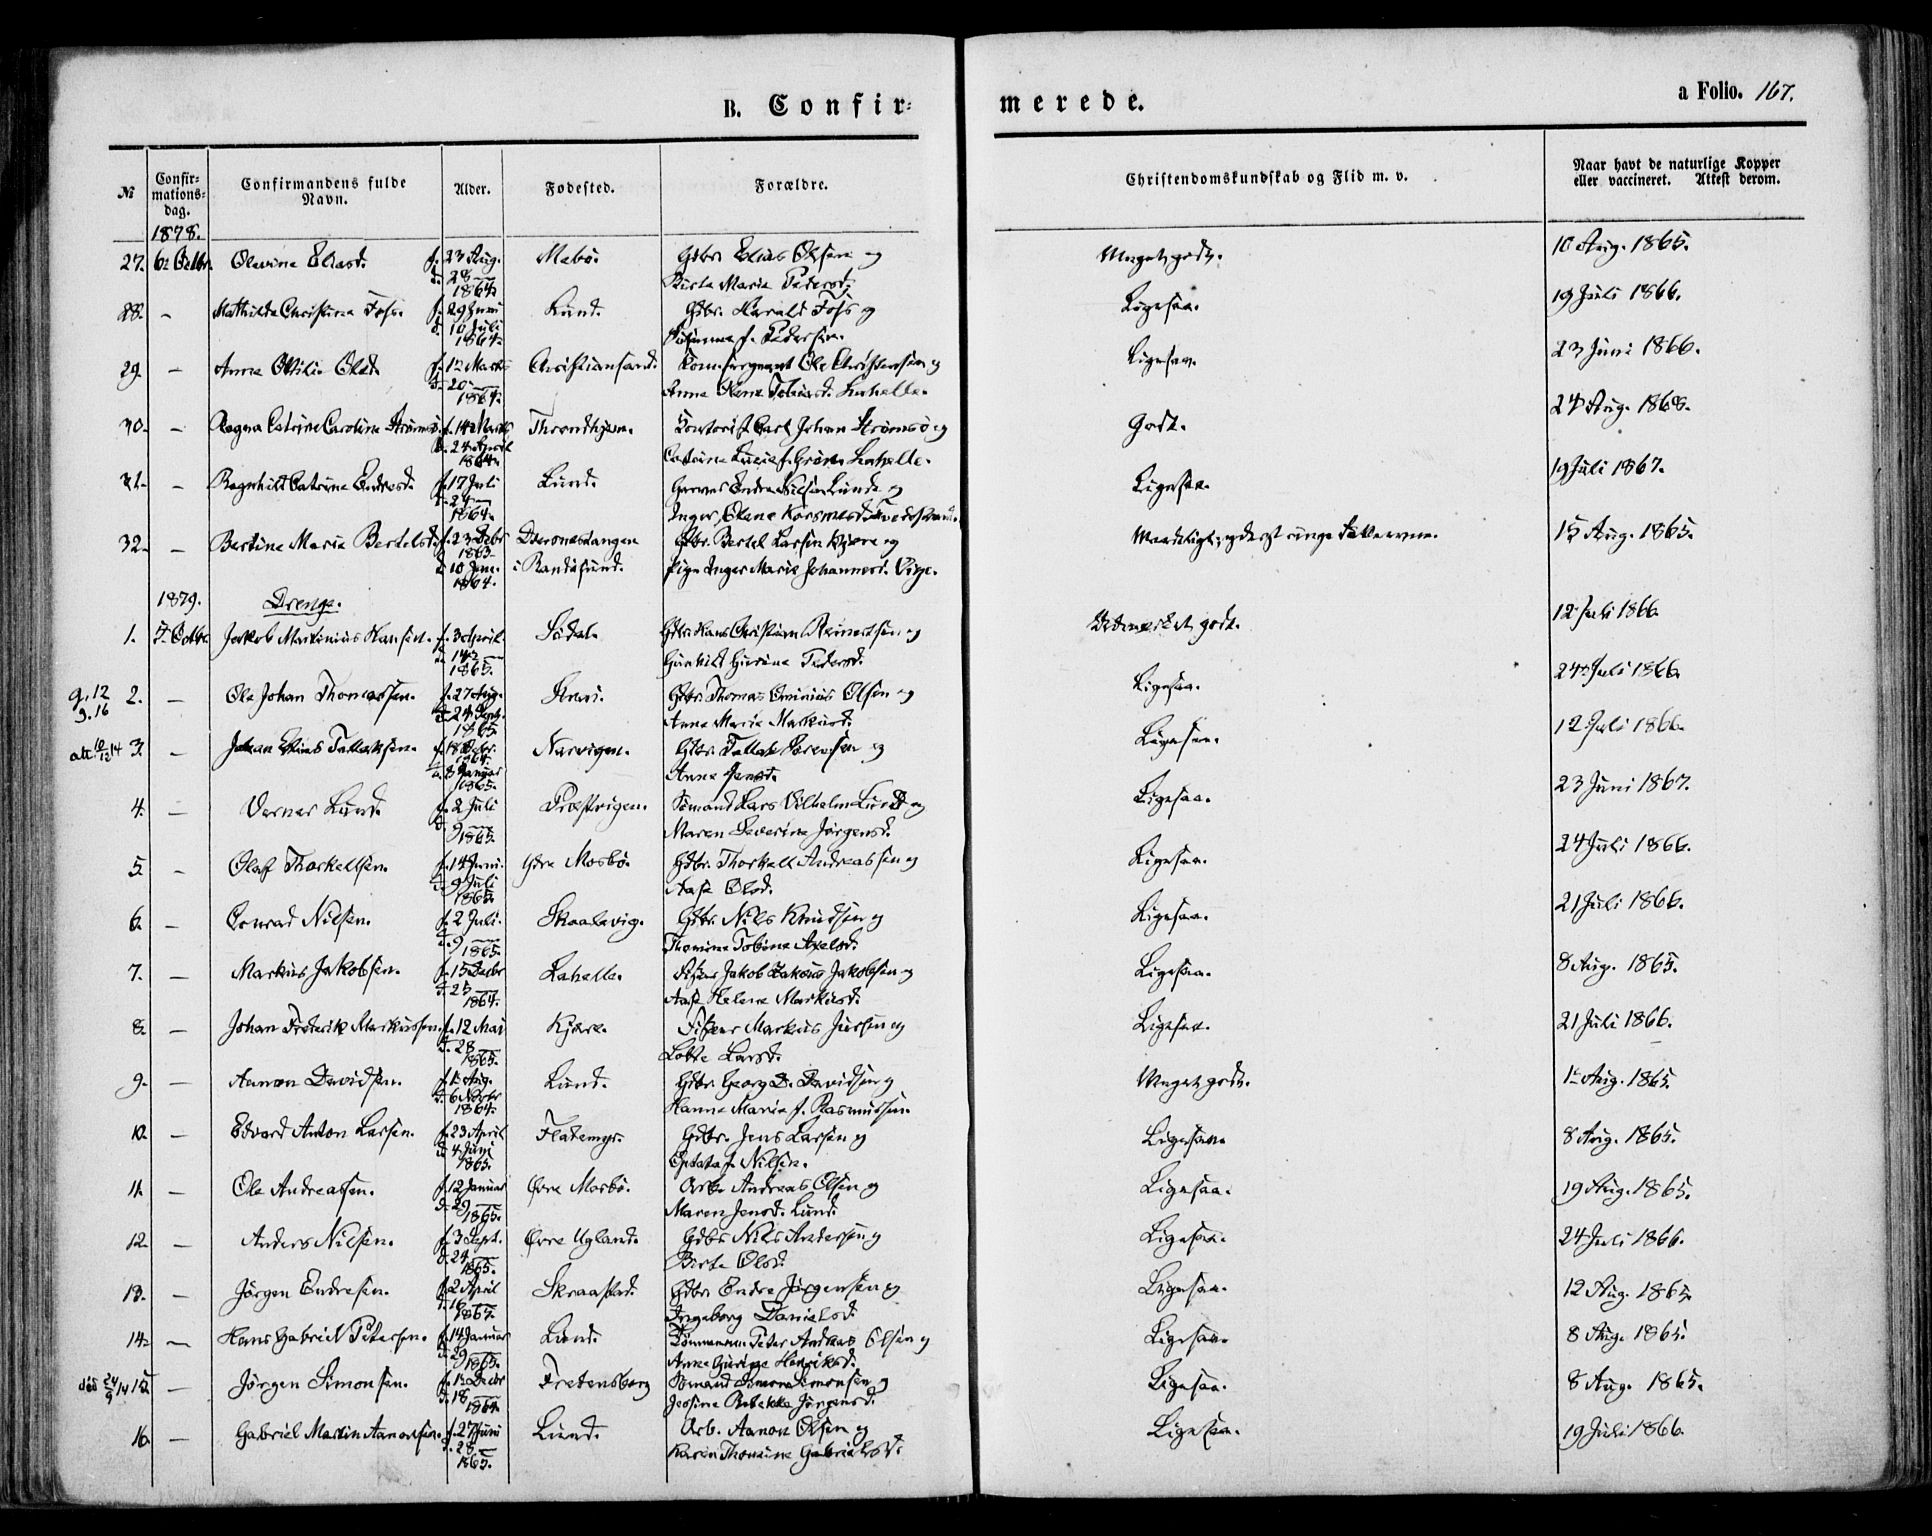 B. Confir-
merede.
a Folio. 167.
№
Confir-
mations-
dag.
Confirmandens fulde
Navn.
Alder.
Fødested.
Forældre.
Christendomskundskab og Flid m. v.
Naar havt de naturlige Kopper
eller vaccineret. Attest derom.
1878.
27. 6te Octbr. Olevine Eliasd. f. 23 Aug. Mebø. Gdbr. Elias Olsen og Meget godt. 10 Aug. 1865.
d. 28 — 1864. Birte Marie Pedersd.
28. — Mathilde Christine Foss. f. 29 Juni Lund. Gdbr. Harald Foss og Ligesaa. 19 Juli 1866.
d. 10 Juli 1864. f. Pedersen.
29. — Anna Ottilie Olsd. f. 12 Marts Christiansand. Ole Christensen og Ligesaa. 23 Juni 1866.
d. 20 — 1864. Anne Olene Tobiasd. Lahelle.
30. — Ragna Catrine Caroline Strømsø f. 14 Marts Throndhjem. Carl Johan Strømsø og Godt. 24 Aug. 1868.
d. 24 April 1864. Catrine Lucie f. Lahelle.
31. — Ragnhild Catrine Endresd. f. 17 Juli Lund. Garver Endre Nilsen Lunde og Ligesaa. 19 Juli 1867.
d. 24 — 1864. Inger Olene
32. — Bertine Marie Bertelsd. f. 23 Decbr. 1863 Dversnestangen Gdbr. Bertel Larsen Kjære og Maadeligt; yderst ringe Fatteevne. 15 Aug. 1865.
d. 10 Jan. 1864. i Randøsund. Pige Inger Marie Johannesd. Vige.
1879. Drenge.
1. 5. Octbr. Jakob Martinius Hansen. f. 3 April Sødal. Gdbr. Hans Christian Reinertsen og Udmerket godt. 12 Juli 1866.
d. 14 — 1865. Gunhild Gurine Pedersd.
g. 12
g. 16
2. — Ole Johan Thomassen. f. 27 Aug. Strai. Gdbr. Thomas Ominius Olsen og Ligesaa. 24 Juli 1866.
d. 24 Sept. 1865 Anne Marie Markusd.
att. 10/12 14
3. — Johan Elias Tallaksen. f. 18 Decbr. 1864. Narvigen. Gdbr. Tallak Sørensen og Ligesaa. 12 Juli 1866.
d. 8 Januar 1865. Anne Jensd.
4. — Verner Lund. f. 2 Juli Præstvigen. Sømand Lars Vilhelm Lund og Ligesaa. 23 Juni 1867.
d. 9 — 1865. Maren Severine Jørgensd.
5. — Olaf Thorkellsen. f. 14 Juni. Ydre Mosbø. Gdbr. Thorkell Andreassen og Ligesaa. 24 Juli 1866.
d. 9 Juli 1865. Aase Olsd.
6. — Conrad Nilsen. f. 2 Juli. Skaalevig. Gdbr. Nils Knudsen og Ligesaa. 21 Juli 1866.
d. 9 — 1865. Thomine Tobine Axelsd.
7. — Markus Jakobsen. f. 15 Decbr Lahelle. Fisker Jakob Zakæus Jakobsen og Ligesaa. 8 Aug. 1865.
d. 25 — 1864. Aase Helene Markusd.
8. — Johan Frederik Markussen. f. 12 Mai Kjære. Fisker Markus Jensen og Ligesaa. 21 Juli 1866.
d. 28 — 1865. Lotte Larsd.
9. — Aanon Davidsen. f. 1 Aug. Lund. Gdbr. Georg D. Davidsen og Meget godt. 1 Aug. 1865.
d. 6 Novbr 1864. Hanna Maria f. Rasmussen.
10. — Edvard Anton Larsen. f. 23 April Flatemyr. Gdbr. Jens Larsen og Ligesaa. 8 Aug. 1865.
d. 4 Juni 1865. Optata f. Nilsen.
11. — Ole Andreassen. f. 12 Januar Øvre Mosbø. Arb. Andreas Olsen og Ligesaa. 19 Aug. 1865.
d. 29 — 1865. Maren Jensd. Lund.
12. — Anders Nilsen. f. 3 Sept. Øvre Ugland. Gdbr. Nils Andersen og Ligesaa. 24 Juli 1866.
d. 24 — 1865. Birte Olsd.
13. — Jørgen Endresen. f. 2 April Skraastad. Gdbr. Endre Jørgensen og Ligesaa. 12 Aug. 1865.
d. 16 — 1865. Ingeborg Danielsd.
14. — Hans Gabriel Petersen. f. 14 Januar Lund. Tømmerm. Peter Andreas Olsen og Ligesaa. 8 Aug. 1865.
d. 29 — 1865. Anne Gurine Henriksd.
død 24/9 14
15. — Jørgen Simonsen. f. 1 Decbr Fretensborg Sømand Simon Simonsen og Ligesaa. 8 Aug. 1865.
d. 18 — 1864. Jessine Rebekka Jørgensd.
16. — Gabriel Martin Aanonsen. f. 27 Juni Lund. Arb. Aanon Olsen og Ligesaa. 19 Juli 1866.
d. 28 — 1865. Karen Thomine Gabrielsd.